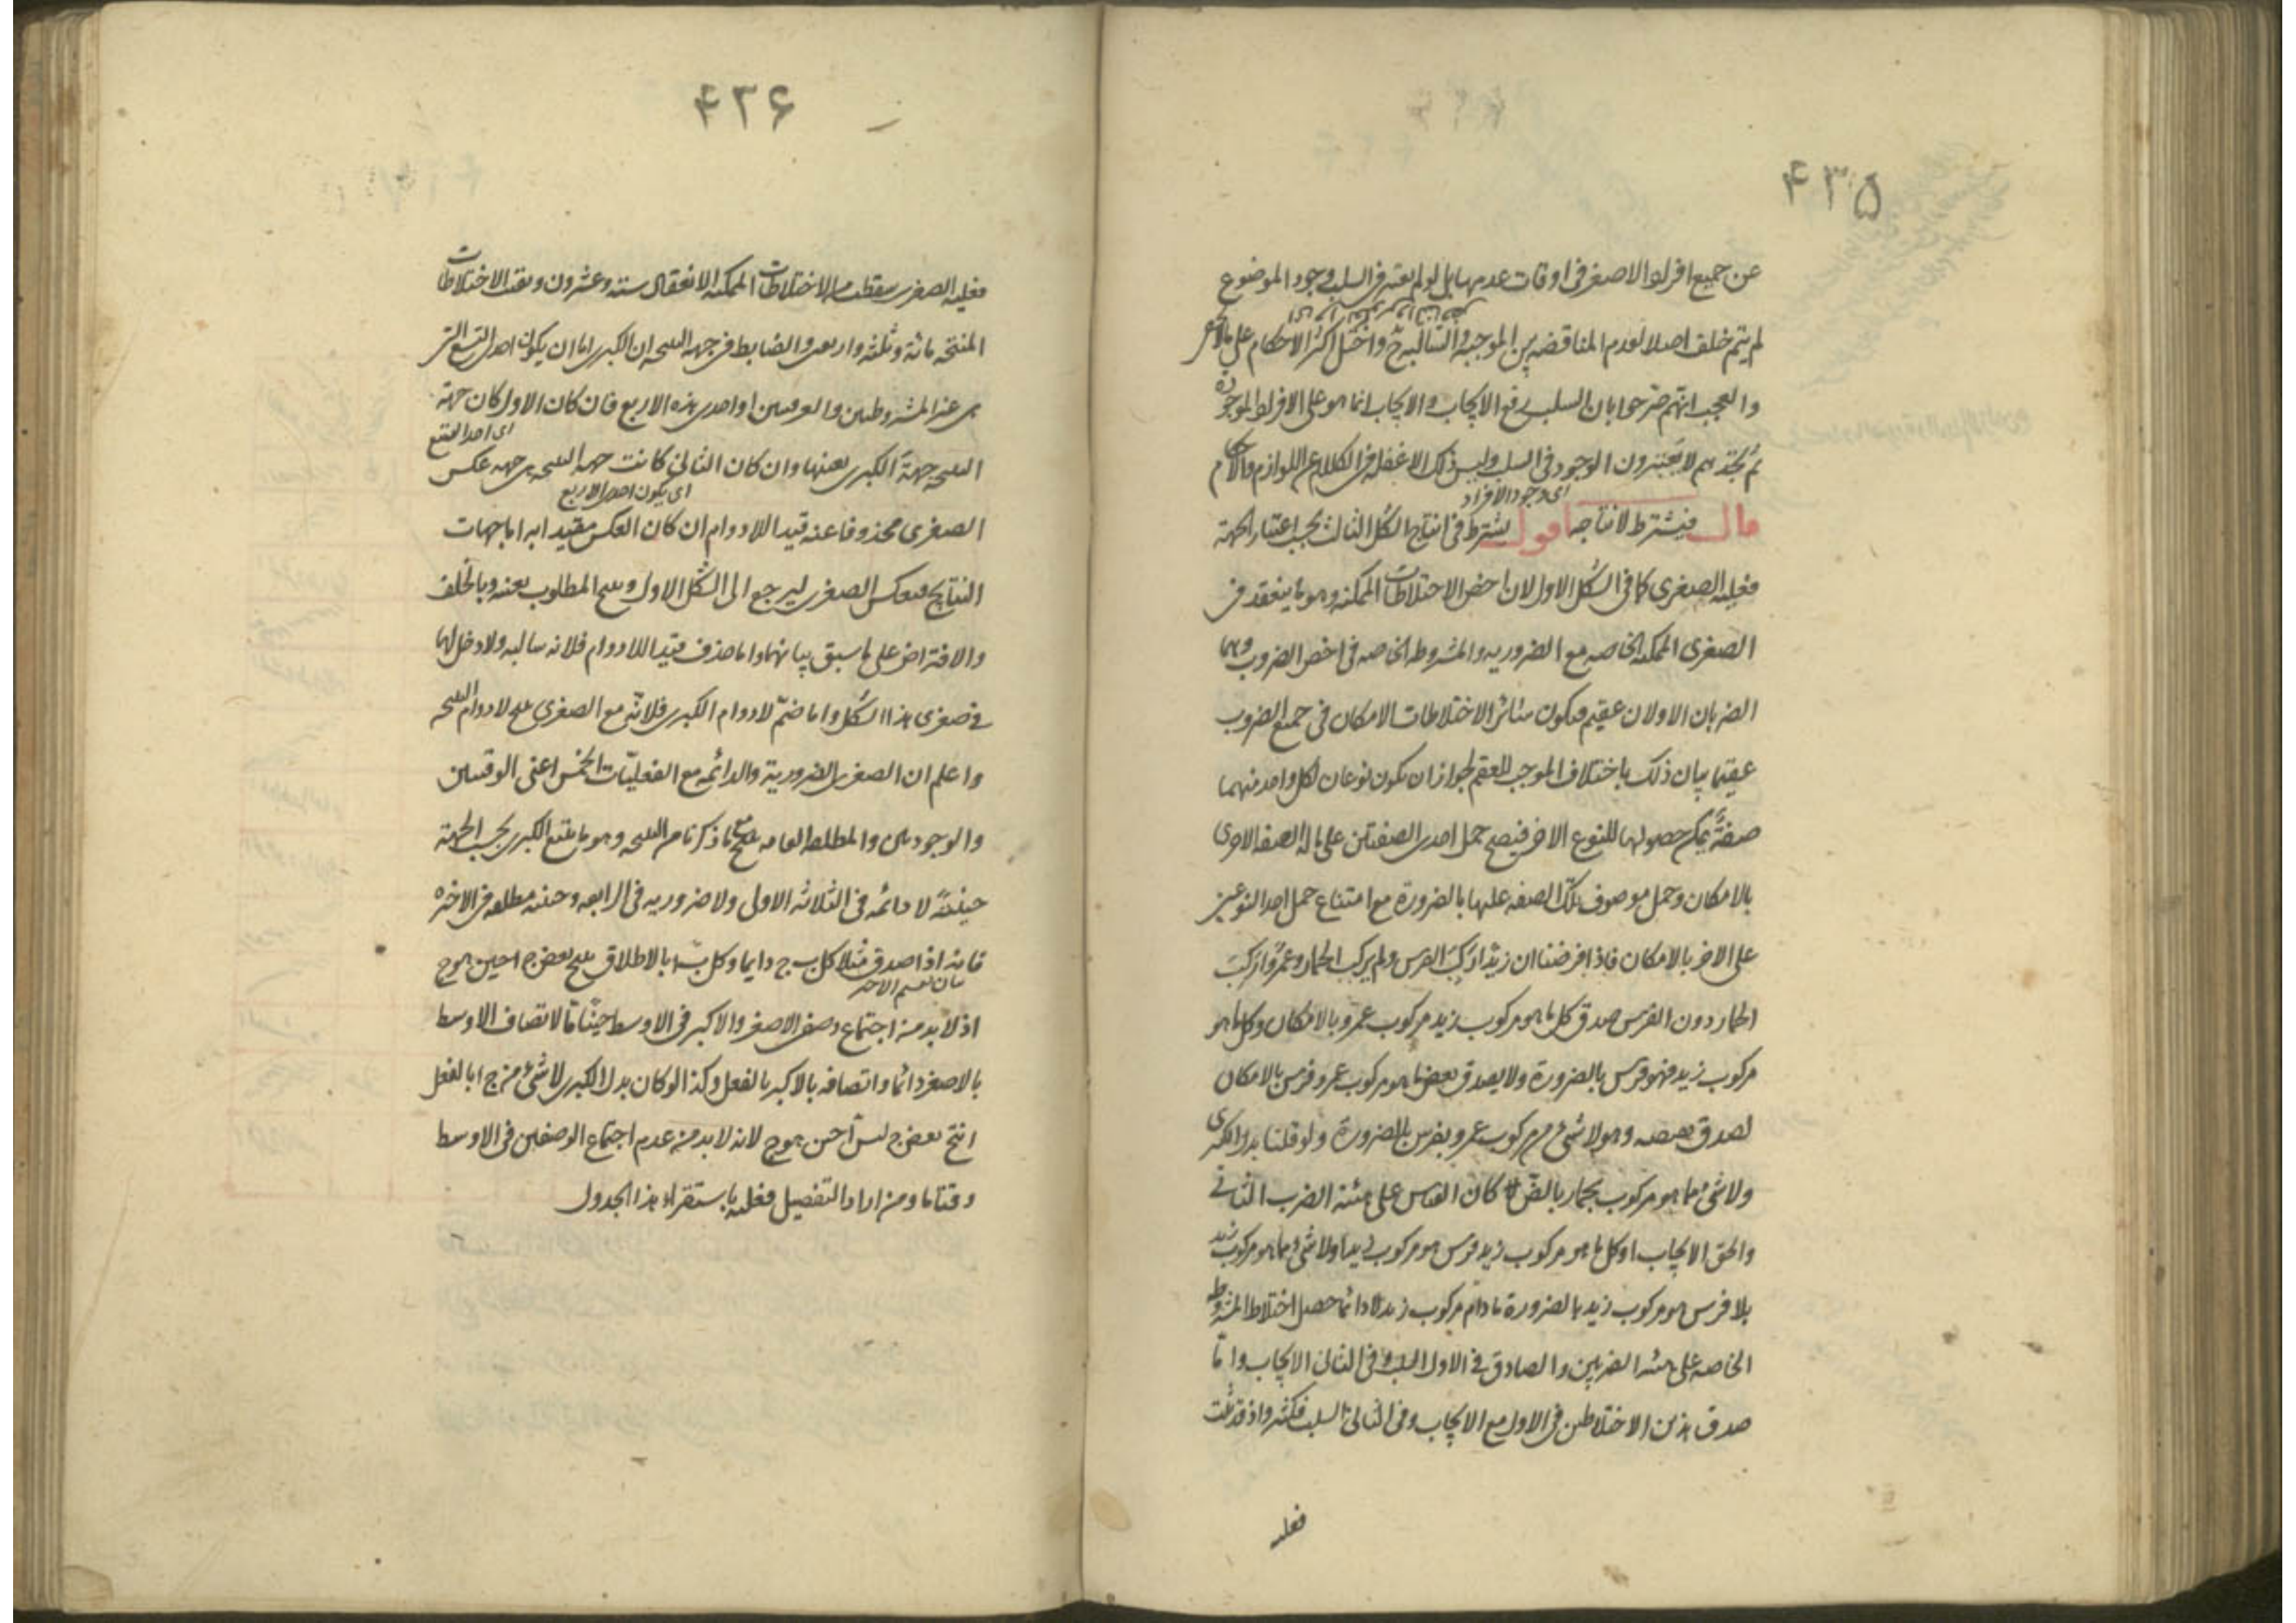 ۴۳۵
عن جميع افراد الاصغر فى اوقات عدمها بل لو لم يعتبر فى السلب وجود الموضوع
لم يتم خلف اصلا لعدم المناقضه بين الموجبة والسالبة ح واختل اكثر الاحكام على ما لا يخفى
والعجب انهم صرحوا بان السلب رفع الايجاب والايجاب انما هو على الافراد الموجودة
ثم تجدهم لا يعتبرون الوجود فى السلب وليس ذلك الا غفلة فى الكلام عن اللوازم والاحكام
اى وجود الافراد
قال فيشترط لانتاجه اقول يشترط فى انتاج الشكل الثالث بحسب اعتبار الجهة
فعلية الصغرى كما فى الشكل الاول لان اخص الاختلاطات الممكنه وهو ما ينعقد من
الصغرى الممكنه الخاصه مع الضروريه والمشروطه الخاصه فى اخص الضروب وهما
الضربان الاولان عقيم فيكون سائر الاختلاطات الامكان فى جميع الضروب
عقيما بيان ذلك باختلاف الموجب للعقم لجواز ان يكون نوعان لكل واحد منهما
صفة يمكن حصولها للنوع الاخر فيصح حمل احدى الصفتين على ما له الصفه الاخرى
بالامكان وحمل موصوف تلك الصفه عليها بالضرورة مع امتناع حمل احد النوعين
على الاخر بالامكان فاذا فرضنا ان زيدا ركب الفرس ولم يركب الحمار وعمروا ركب
الحمار دون الفرس صدق كل ما هو مركوب زيد مركوب عمرو بالامكان وكل ما هو
مركوب زيد فهو فرس بالضرورة ولا يصدق بعض ما هو مركوب عمرو فرس بالامكان
لصدق نقيضه وهو لا شئ من مركوب عمرو بفرس بالضرورة ولو قلنا بدل الكبرى
ولا شئ مما هو مركوب زيد بحمار بالضرورة كان القياس على هيئة الضرب الثانى
والحق الايجاب او كل ما هو مركوب زيد فرس هو مركوب زيد او لا شئ مما هو مركوب زيد
بلا فرس هو مركوب زيد بالضرورة ما دام مركوب زيد لا دائما حصل اختلاط المشروطه
الخاصه على هيئة الضربين والصادق فى الاول السلب وفى الثانى الايجاب واما
صدق هذين الاختلاطين فى الاول مع الايجاب وفى الثانى السلب فكثير واذ قد ثبت
فعليه
۴۳۶
فعلية الصغرى سقطت من الاختلاطات الممكنة الانعقاد ستة وعشرون وبقيت الاختلاطات
المنتجة مائة وثلثة واربعون والضابط فى جهة النتيجة ان الكبرى اما ان يكون احدى التسع التى
هى غير المشروطتين والعرفيتين او احدى هذه الاربع فان كان الاول كان جهة
اى احد التسع
النتيجة جهة الكبرى بعينها وان كان الثانى كانت جهة النتيجة هى جهة عكس
اى يكون احدى الاربع
الصغرى محذوفا عنه قيد اللادوام ان كان العكس مقيدا به اما جهات
النتايج فبعكس الصغرى ليرجع الى الشكل الاول وينتج المطلوب بعينه وبالخلف
والافتراض على ما سبق بيانهما واما حذف قيد اللادوام فلانه سالبه ولا دخل لها
فى صغرى هذا الشكل واما ضم لادوام الكبرى فلانه مع الصغرى ينتج لادوام النتيجة
واعلم ان الصغرى الضرورية والدائمه مع الفعليات الخمس اعنى الوقتيتين
والوجوديتين والمطلقه العامه ينتج مع ما ذكرنا من النتيجة وهو ما يتبع الكبرى بحسب الجهة
حينية لا دائمه فى الثلاثه الاولى ولا ضروريه فى الرابعه وحينية مطلقه فى الاخيره
فانه اذا صدق مثلا كل ب ج دايما وكل ب ا بالاطلاق ينتج بعض ج ا حين هو ج
بيان لقسم الاخير
اذ لا بد من اجتماع وصفى الاصغر والاكبر فى الاوسط حينا ما لاتصاف الاوسط
بالاصغر دائما واتصافه بالاكبر بالفعل وكذا لو كان بدل الكبرى لا شئ من ج ا بالفعل
انتج بعض ج ليس ا حين هو ج لانه لا بد من عدم اجتماع الوصفين فى الاوسط
وقتا ما ومن اراد التفصيل فعليه باستقراء هذا الجدول